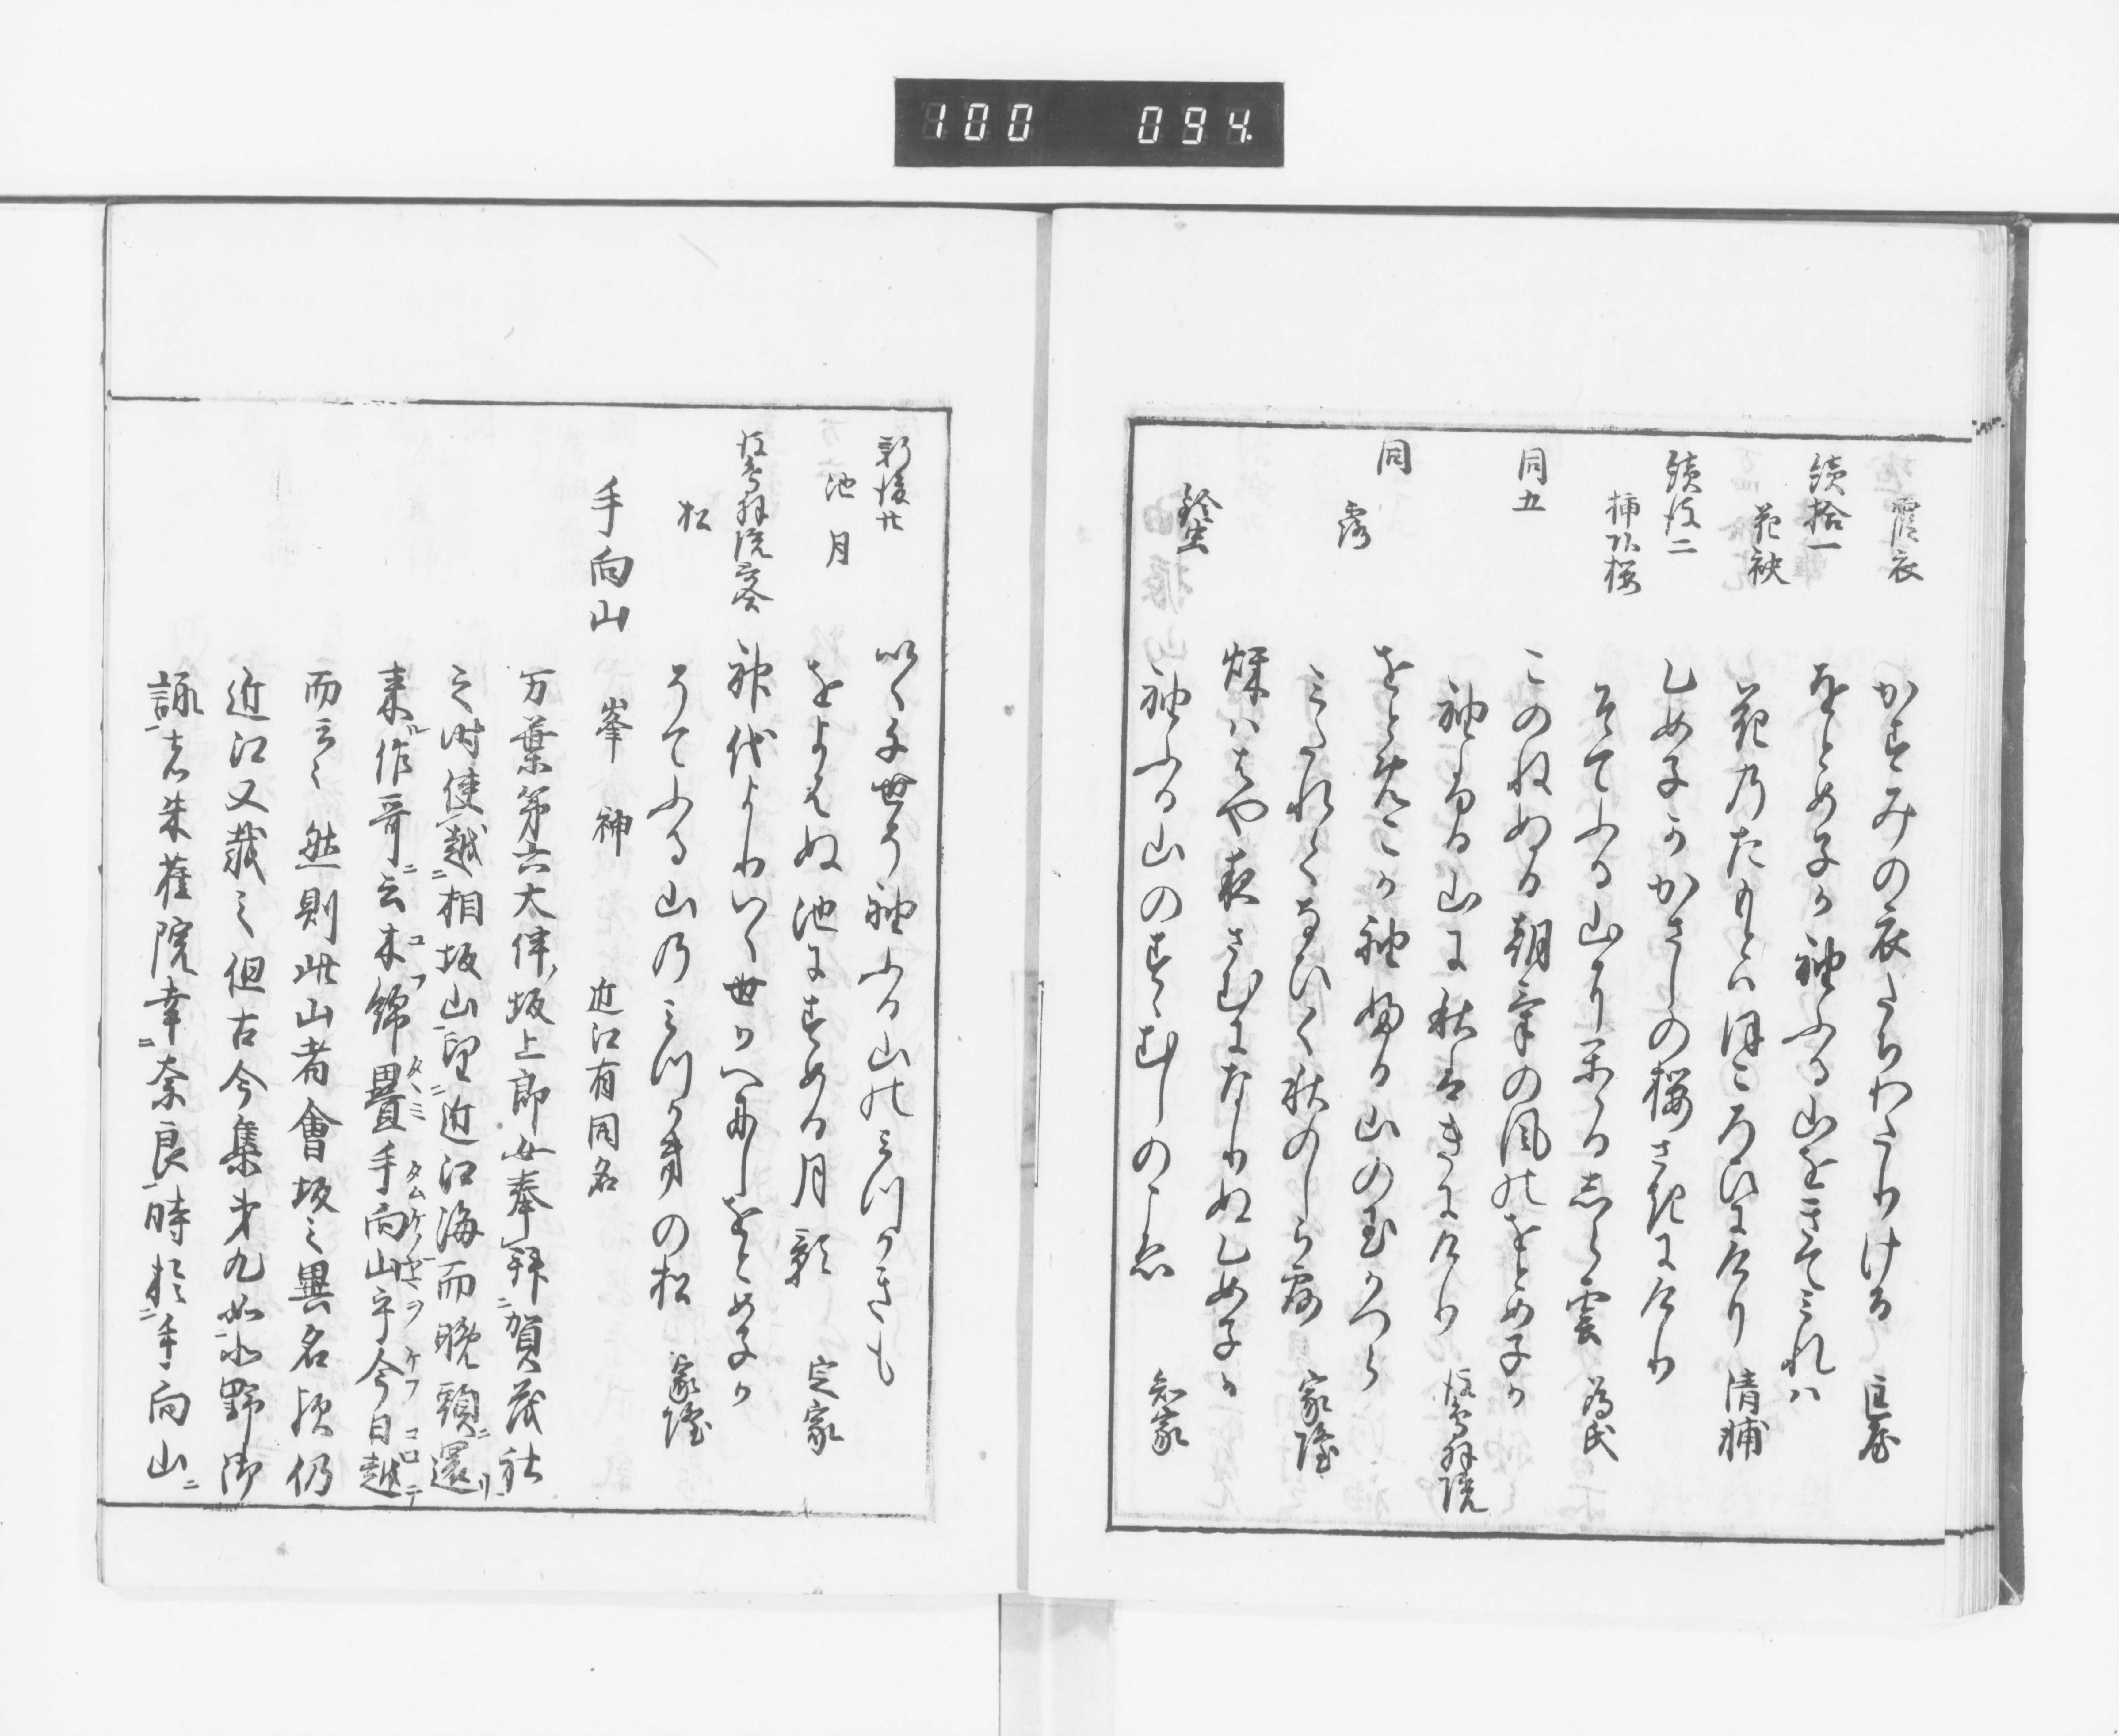 100 094.
霞衣
かすみの衣たちわたりける 匡房
続拾一
をとめ子か袖ふる山をきてみれは
花袂
花のたもとはほころひにけり 清輔
続後二
乙め子かかさしの桜さきにけり
挿頭桜
そてふる山にかゝる志ら雲 為氏
同五
このねぬる朝気の風のをとめ子か
袖ふる山に秋はきにけり 後鳥羽院
同
をとめこか袖ふる山の玉かつら
露
みたれてなひく秋のしら露 家隆
鈴虫
秋ははや夜さむになりぬ乙め子か
袖ふる山のすゝむしのこゑ 知家
新後廿
いく千世そ袖ふる山のみつかきも
池月
をよはぬ池にすめる月影 定家
後鳥羽院宸
神代よりいく世かへにしをとめ子か
松
そてふる山のみつかきの松 家隆
手向山 峯 神 近江有同名
万葉第六大伴坂上郎女奉拝賀茂社
之時使越相坂山望近江海而晩頭還
来作哥云木綿畳手向山乎今日越
而云々 然則此山者會坂之異名歟仍
近江又載之但古今集第九如小野御
詠者朱雀院幸奈良時於手向山